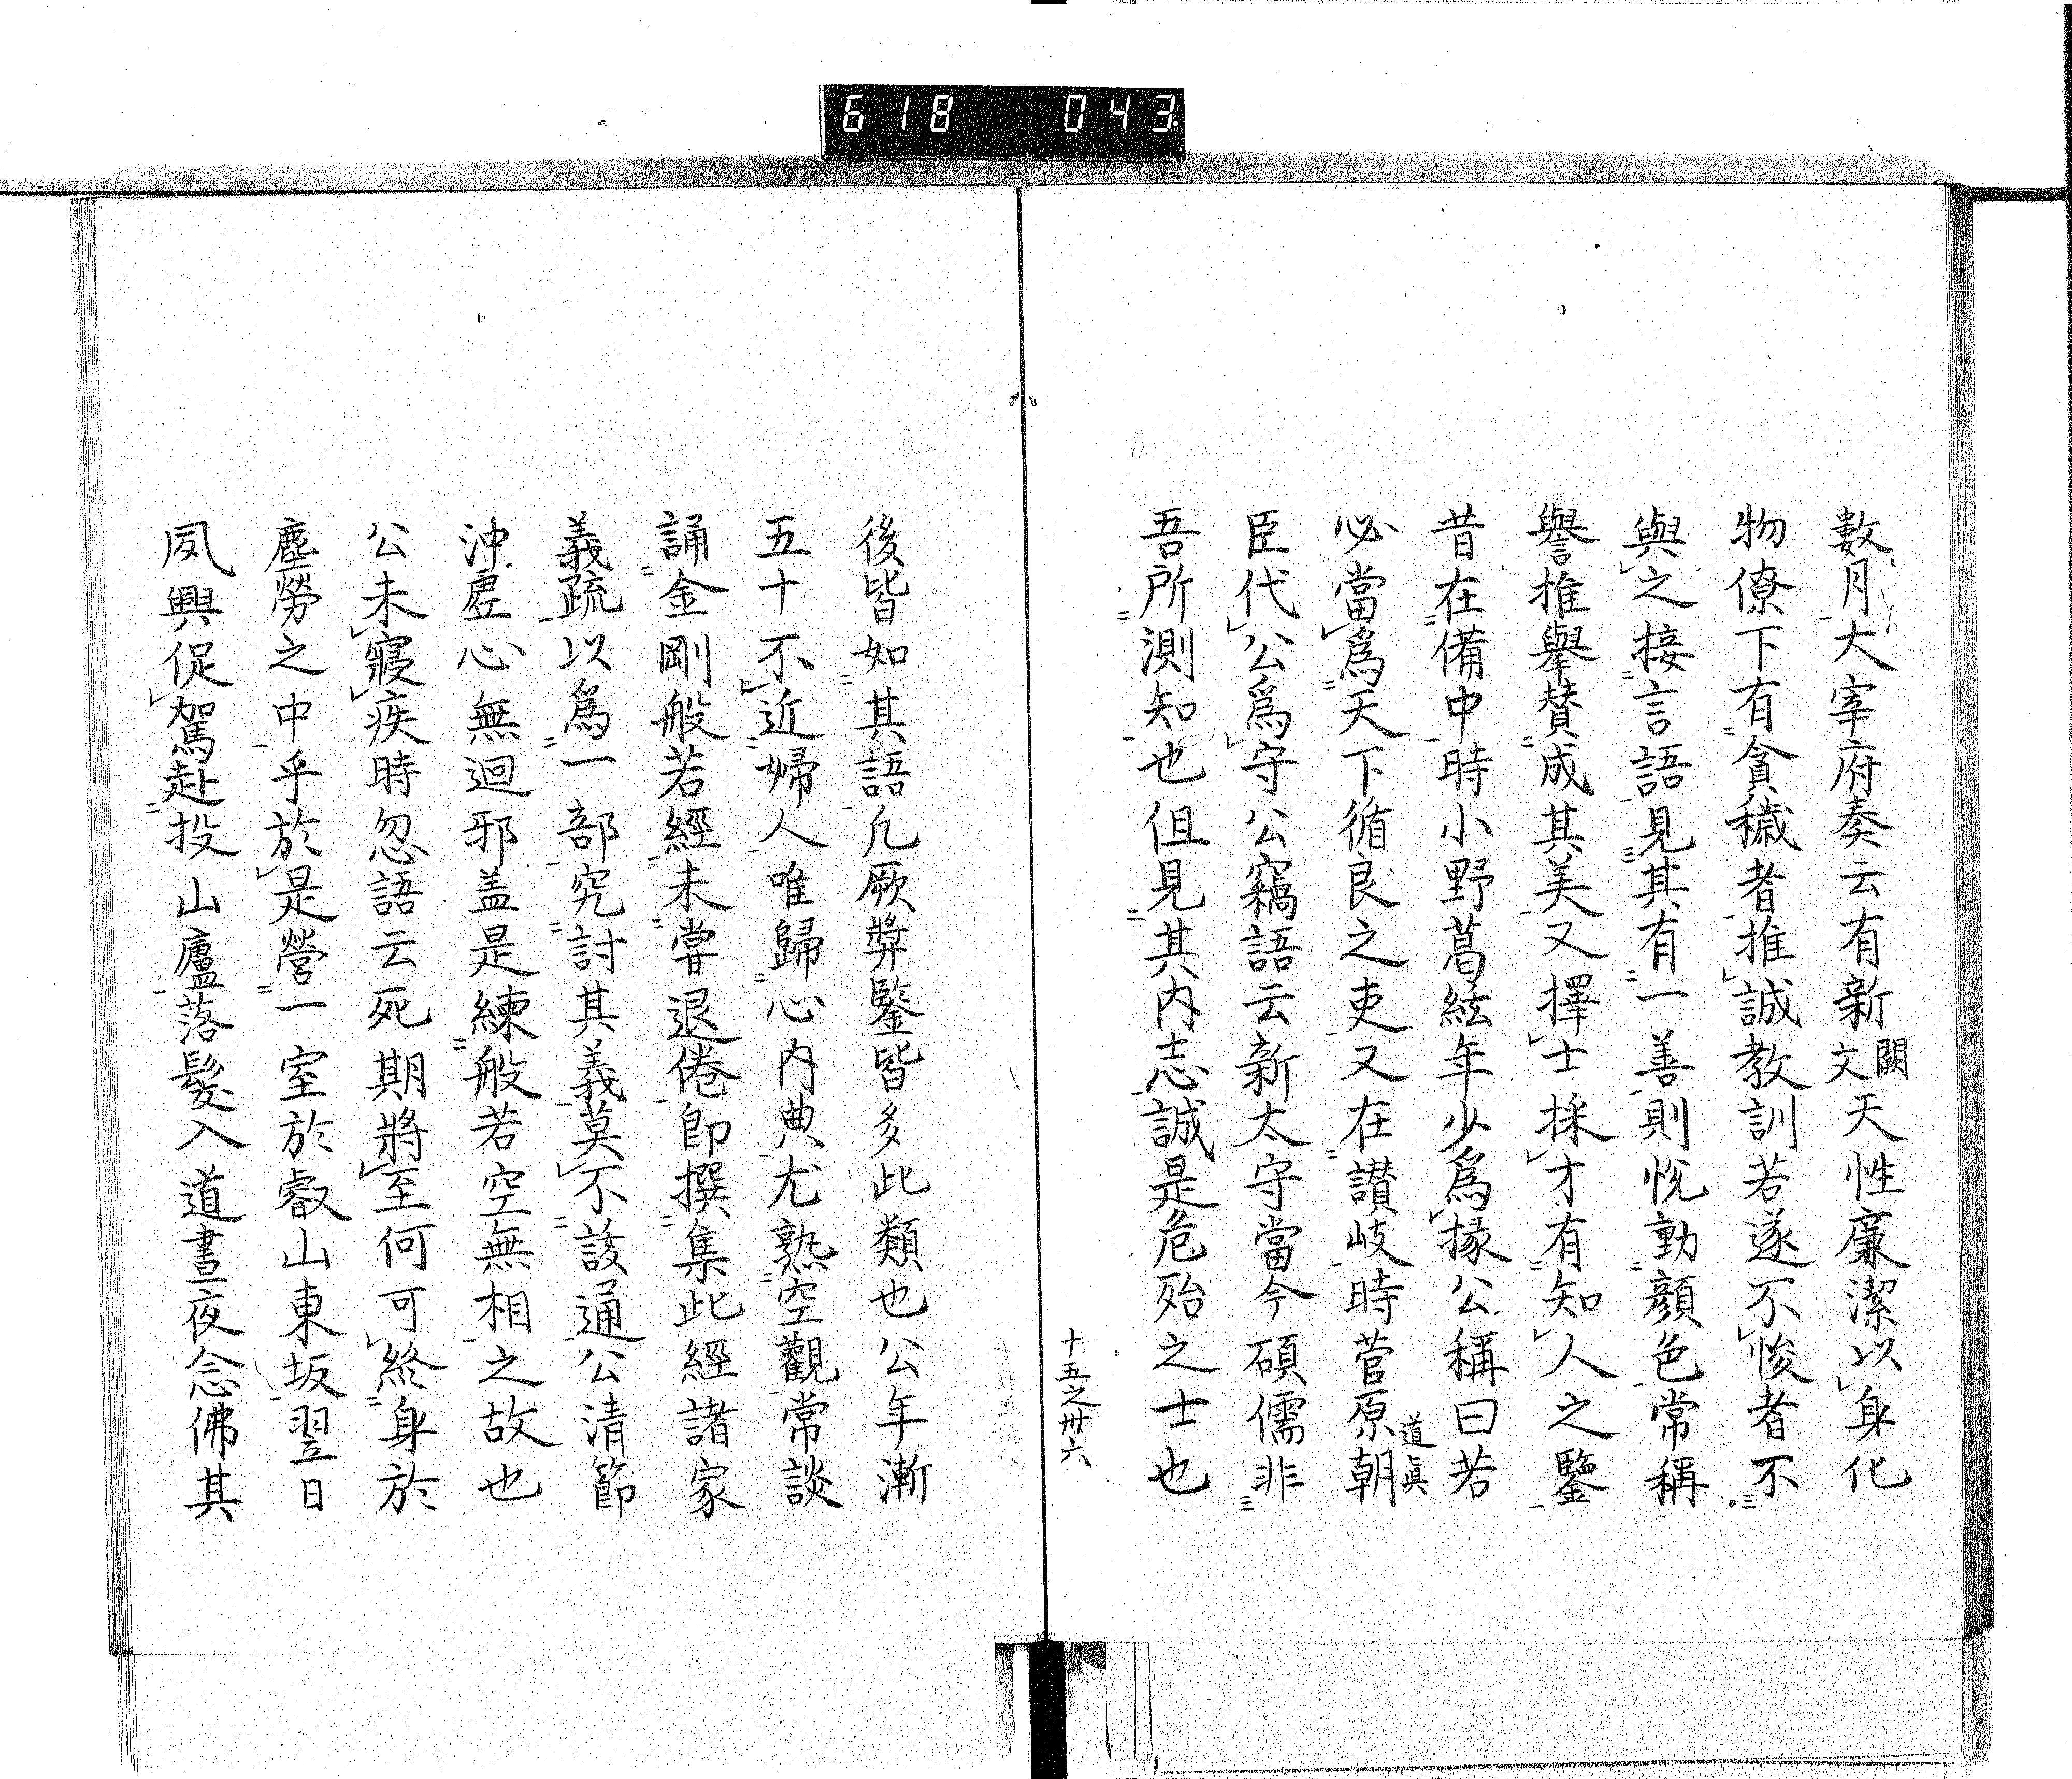 618 043
數月大宰府奏云有新闕文天性廉潔以身化
物僚下有貪穢者推誠教訓若遂不悛者不
與之接言語見其有一善則悦動顔色常稱
譽推擧賛成其美又擇士採才有知人之鑒
昔在備中時小野葛絃年少爲掾公稱曰若
必當爲天下循良之吏又在讃岐時菅原朝道眞
臣代公爲守公竊語云新太守當今碩儒非
吾所測知也但見其内志誠是危殆之士也
十五之卅六
後皆如其語凢厥弉鑒皆多此類也公年漸
五十不近婦人唯歸心内典尤熟空觀常談
誦金剛般若經未甞退倦即撰集此經諸家
義疏以爲一部究討其義莫不該通公清節
沖虛心無迴邪盖是練般若空無相之故也
公未寢疾時忽語云死期將至何可終身於
塵勞之中乎於是營一室於叡山東坂翌日
夙興促駕赴投山廬落髪入道晝夜念佛其